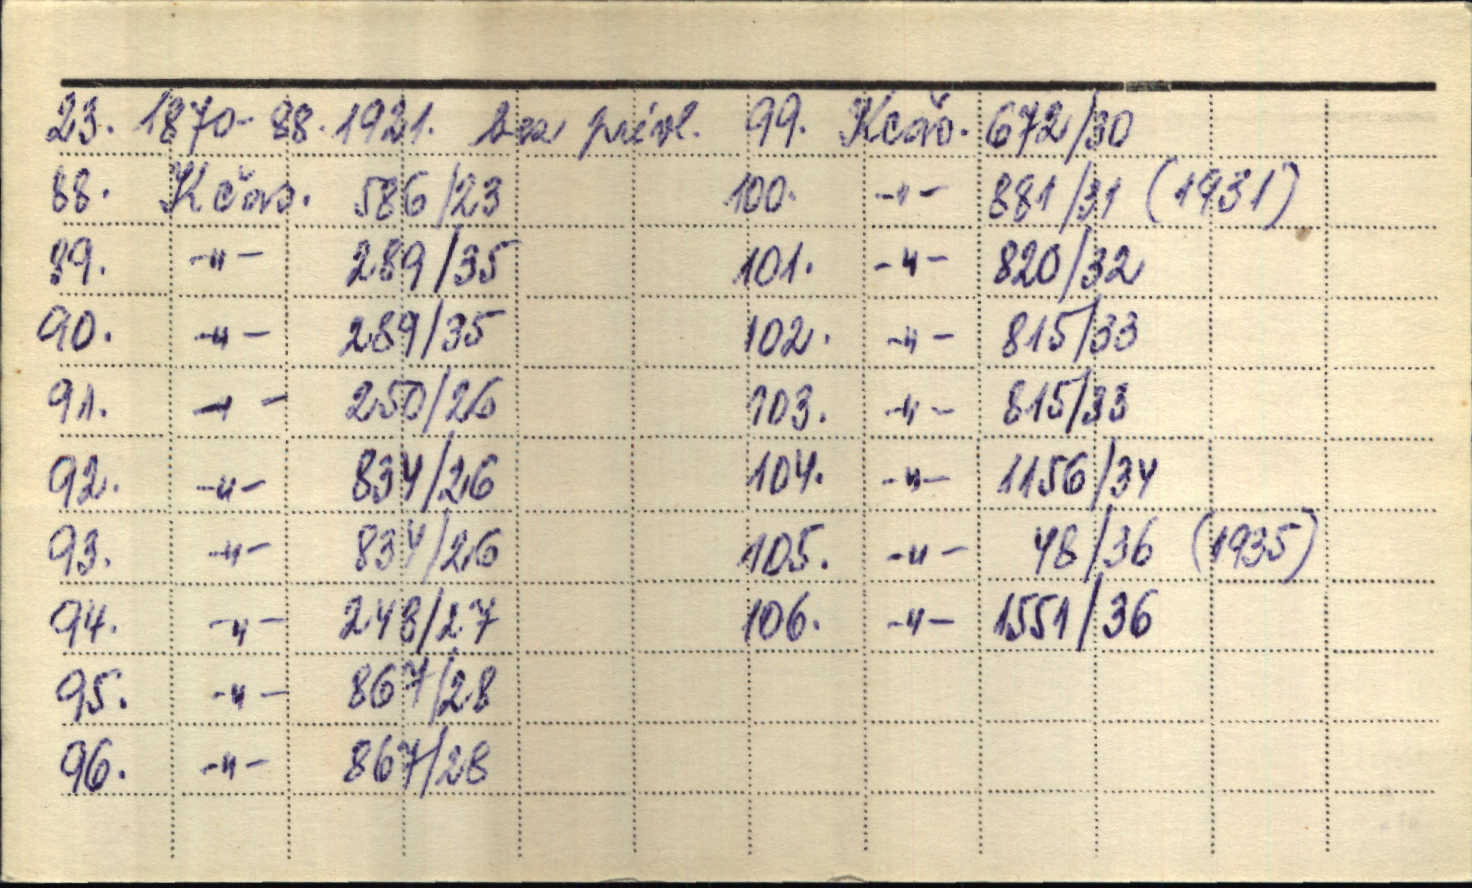 23. 1870-88. 1921. bez přívl. 99. Kčas. 672/30
88. Kčas. 586/23 100. -"- 881/31 (1931)
89. -"- 289/35 101. -"- 820/32
90. -"- 289/35 102. -"- 815/33
91. -"- 250/26 103. -"- 815/33
92. -"- 834/26 104. -"- 1156/34
93. -"- 834/26 105. -"- 48/36 (1935)
94. -"- 248/27 106. -"- 1551/36
95. -"- 867/28
96. -"- 867/28